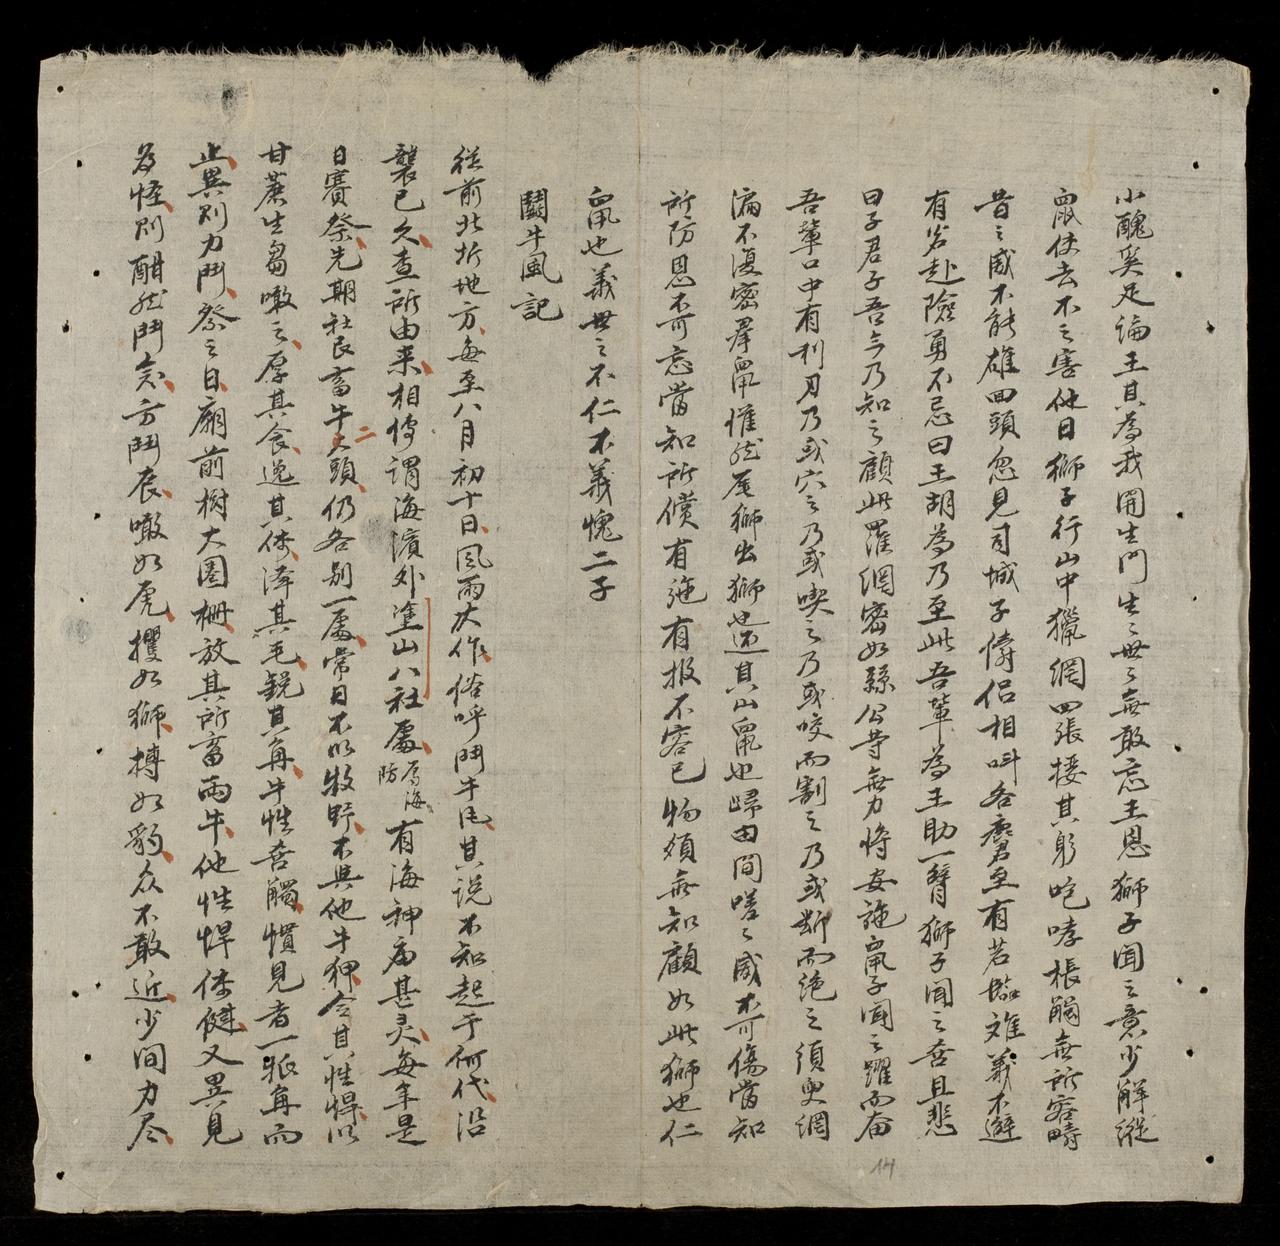 小醜奚足論王其為我開生門生々世々無敢忘王恩獅子聞之意少解縱
鼠使去不之害他日獅子行山中獵網四張摟其躬咆哮棖觸無所容疇
昔之威不能雄回頭忽見司城子儔侶相呌各麏至有若臨难義不避
有若赴險勇不忌曰王胡為乃至此吾輩為王助一臂獅子聞之喜且悲
曰子君子吾今乃知之顧此羅網密如綠公等無力將安施鼠子聞之躍而奋
吾輩口中有利刃乃或穴之乃或喫之乃或咬而割之乃或斷而绝之须臾網
漏不復密羣鼠懽然尾獅出獅也还其山鼠也歸田間嗟々威不可傷當知
所防恩不可忘當知所償有施有报不容已物頑無知顧如此獅也仁
鼠也義世之不仁不義愧二子
鬪牛風記
從前北圻地方每至八月初十日風雨大作俗呼鬥牛风其说不知起于何代沿
襲已久查所由来相傳謂海濱外塗山八社處属海防有海神庙甚灵每年是
日賽祭先期社民畜牛二頭仍各别一處常日不以牧野不與他牛狎令其性悍以
甘蔗生芻噉之厚其食逸其体泽其毛銳其角牛性喜觸慣見者一牴角而
止異則力鬥祭之日廟前樹大圈柵放其所畜兩牛他性悍体健又異見
為怪則酣然鬥矣方鬥辰噉如虎攫如獅搏如豹众不敢近少间力尽
14